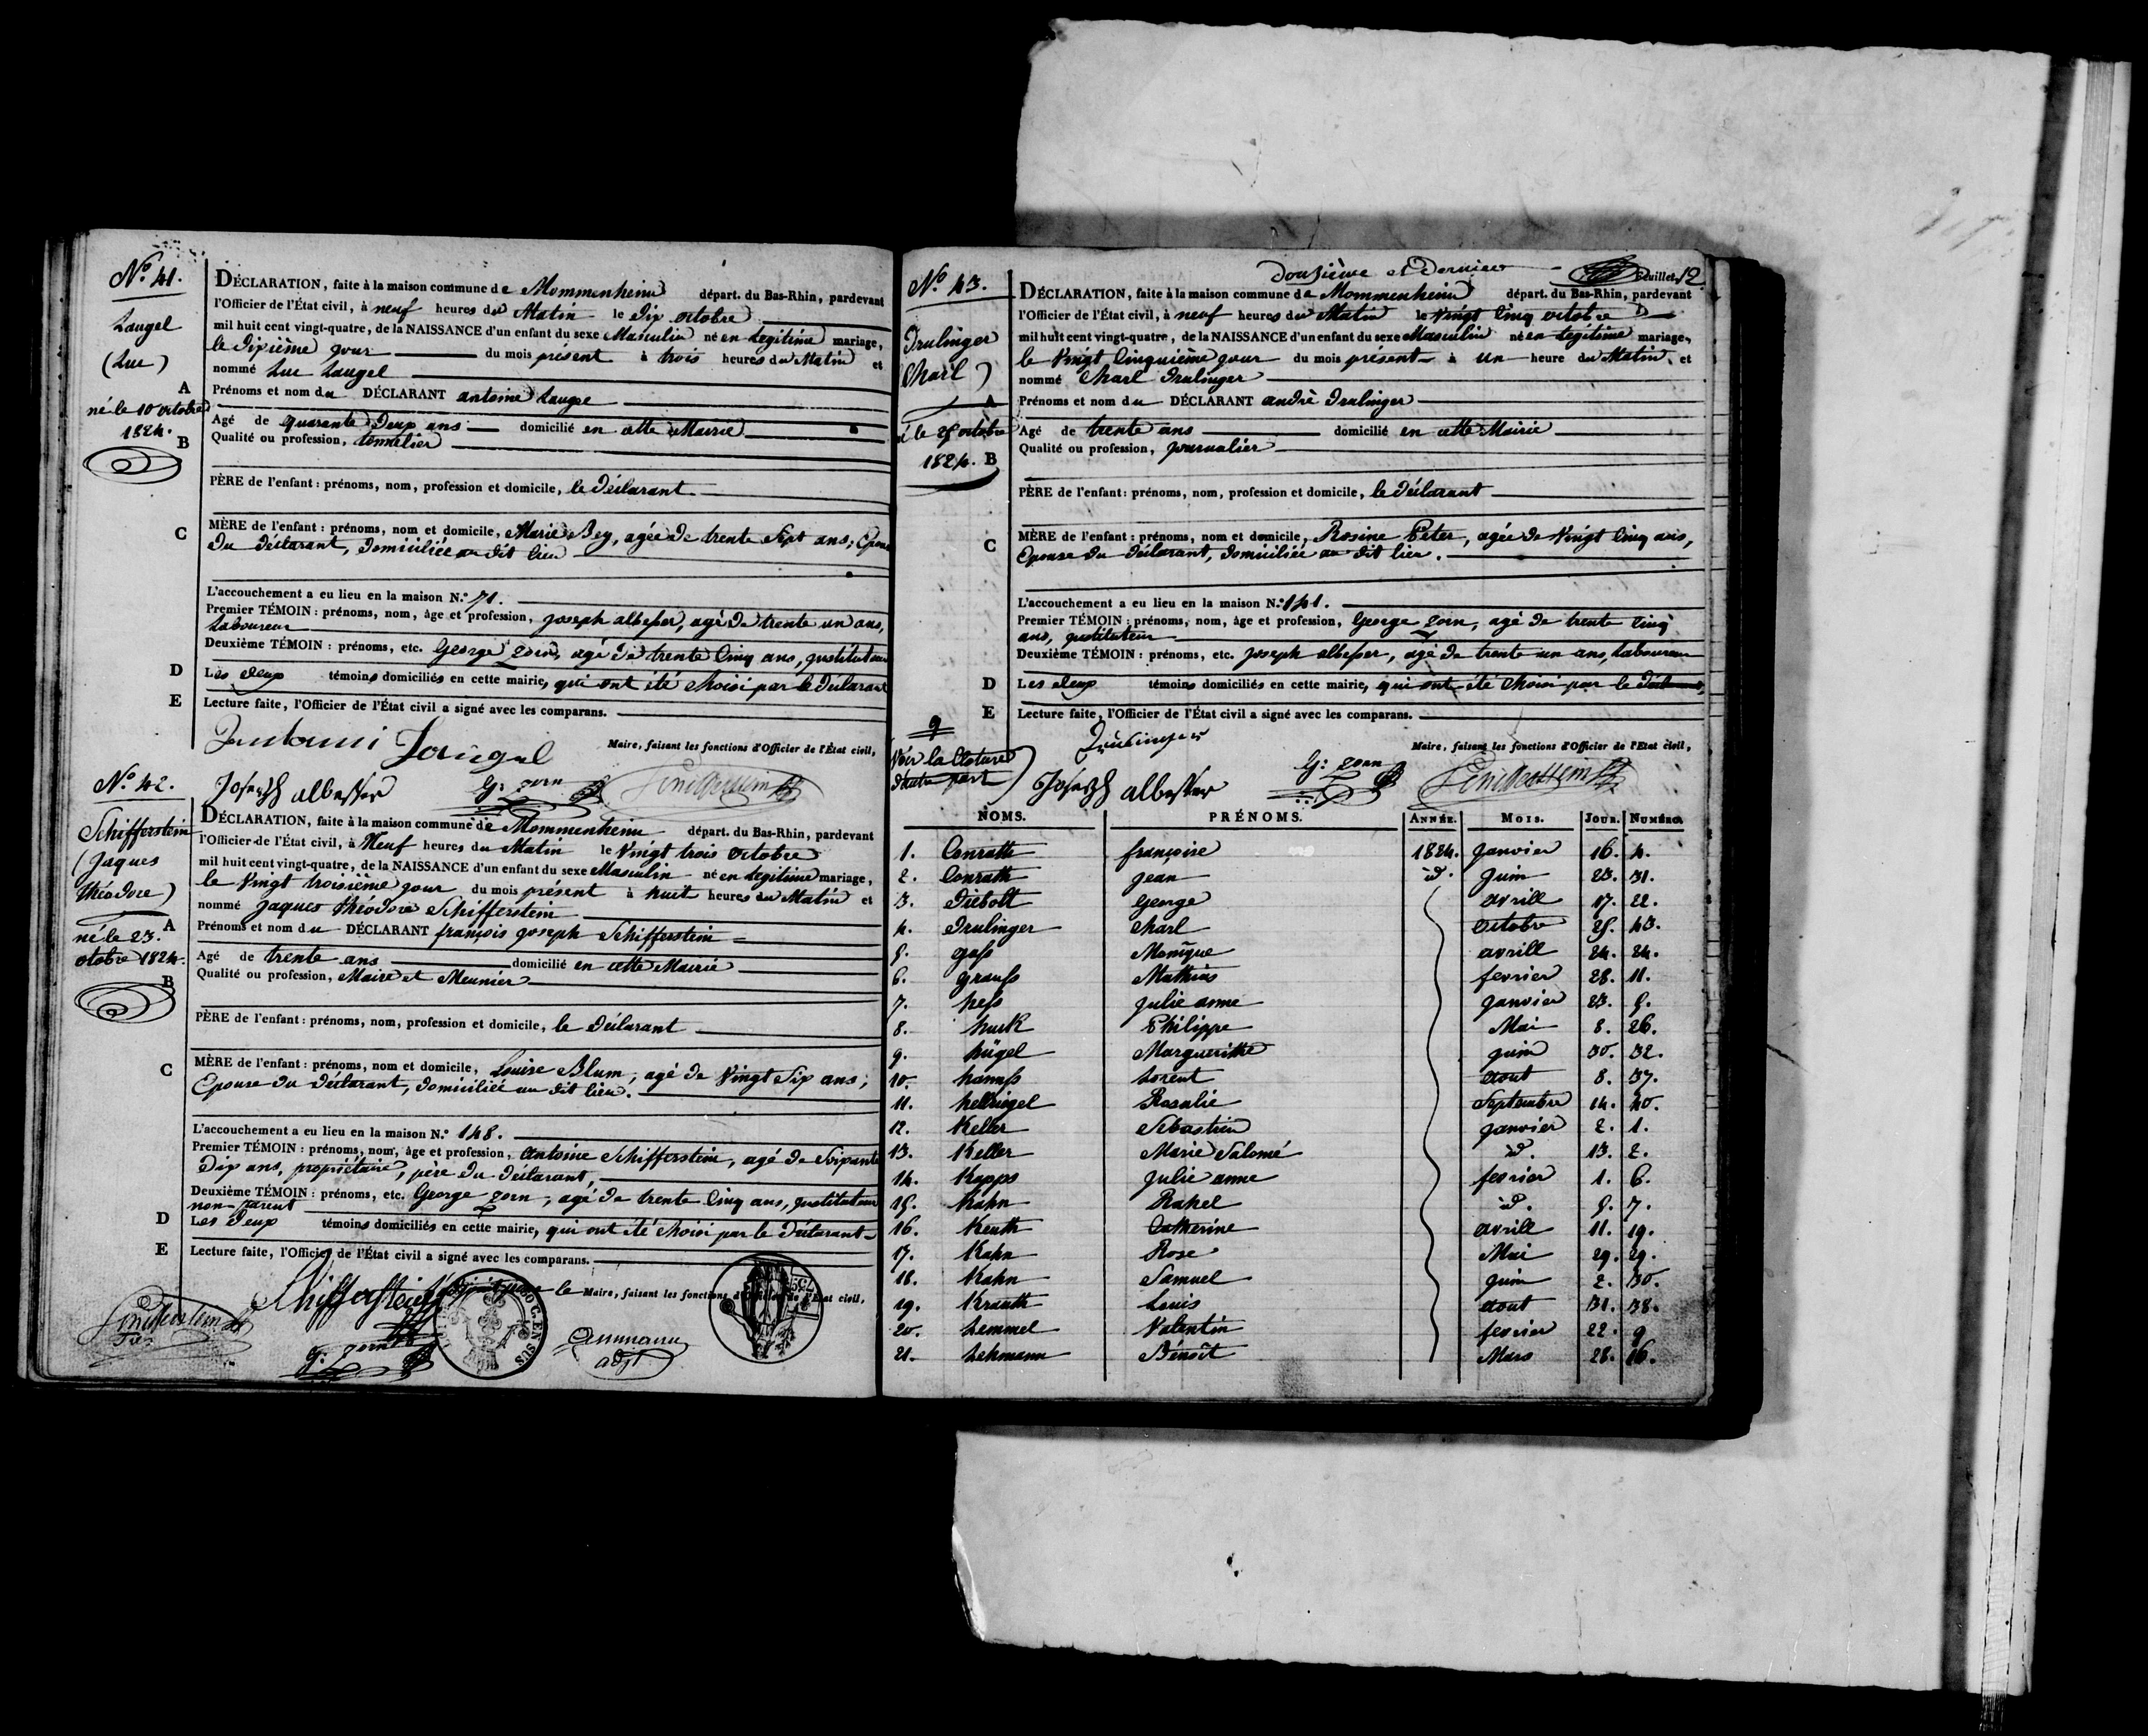 N.º 41.
Laugel
(Luc)
A
né le 10 octobre
1824.
B
C
D
E
DÉCLARATION, faite à la maison commune de Mommenheim départ. du Bas-Rhin, pardevant
l'Officier de l'État civil, à neuf heures du Matin le Dix octobre
mil huit cent vingt-quatre, de la NAISSANCE d'un enfant du sexe Masculin né en Legitime mariage,
le Dixième jour du mois présent à trois heures du Matin et
nommé Luc Laugel
Prénoms et nom du DÉCLARANT antoine Laugel
Agé de quarante Deux ans domicilié en cette Mairie
Qualité ou profession, tonnelier
PÈRE de l'enfant : prénoms, nom, profession et domicile, le Déclarant
MÈRE de l'enfant : prénoms, nom et domicile, Marie Bey, agée de trente Sept ans, Epouse
du Déclarant, Domiciliée au dit lieu
L'accouchement a eu lieu en la maison N.º 71.
Premier TÉMOIN : prénoms, nom, âge et profession, Joseph albesser, agé de trente un ans,
Laboureur
Deuxième TÉMOIN : prénoms, etc. George Zorn, agé de trente Cinq ans, justituteur
Les Deux témoins domiciliés en cette mairie, qui ont été choisi par le Déclarant
Lecture faite, l'Officier de l'État civil a signé avec les comparans.
Laugel
Maire, faisant les fonctions d'Officier de l'État civil,
Joseph albesser G: Zorn
N.º 42.
Schifferstein
(Jaques
théodore)
A
né le 23.
otobre 1824.
B
C
D
E
DÉCLARATION, faite à la maison commune de Mommenheim départ. du Bas-Rhin, pardevant
l'Officier de l'État civil, à Neuf heures du Matin le Vingt trois octobre
mil huit cent vingt-quatre, de la NAISSANCE d'un enfant du sexe Masculin né en Legitime mariage,
le Vingt troisième jour du mois présent à huit heures du Matin et
nommé Jaques théodore Schifferstein
Prénoms et nom du DÉCLARANT françois joseph Schifferstein
Agé de trente ans domicilié en cette Mairie
Qualité ou profession, Maire et Meunier
PÈRE de l'enfant : prénoms, nom, profession et domicile, le Déclarant
MÈRE de l'enfant : prénoms, nom et domicile, Louise Blum, agé de Vingt Six ans,
Epouse du Déclarant, Domiciliée au dit lieu.
L'accouchement a eu lieu en la maison N.º 148.
Premier TÉMOIN : prénoms, nom, âge et profession, antoine Schifferstein, agé de Soixante
Dix ans, propriétaire, père du Déclarant,
Deuxième TÉMOIN : prénoms, etc. George Zorn, agé de trente Cinq ans, justituteur
non parent
Les Deux témoins domiciliés en cette mairie, qui ont été choisi par le Déclarant
Lecture faite, l'Officier de l'État civil a signé avec les comparans.
Schifferstein
le Maire, faisant les fonctions d'Officier de l'État civil,
G: Zorn
adjt
C. EN SUS
Douzième et Dernier Feuillet 12
N.º 43.
Drulinger
(Charl)
A
né le 25 octobre
1824. B
C
D
E
DÉCLARATION, faite à la maison commune de Mommenheim départ. du Bas-Rhin, pardevant
l'Officier de l'État civil, à neuf heures du Matin le Vingt Cinq octobre
mil huit cent vingt-quatre, de la NAISSANCE d'un enfant du sexe Masculin né en Legitime mariage,
le Vingt Cinquième jour du mois présent à un heure du Matin, et
nommé Charl Drulinger
Prénoms et nom du DÉCLARANT andré Drulinger
Agé de trente ans domicilié en cette Mairie
Qualité ou profession, journalier
PÈRE de l'enfant : prénoms, nom, profession et domicile, le Déclarant
MÈRE de l'enfant : prénoms, nom et domicile, Rosine Peter, agée de Vingt Cinq ans,
Epouse du Déclarant, Domiciliée au dit lieu.
L'accouchement a eu lieu en la maison N.º 141.
Premier TÉMOIN : prénoms, nom, âge et profession, George Zorn, agé de trente Cinq
ans, justituteur
Deuxième TÉMOIN : prénoms, etc. Joseph albesser, agé de trente un ans, Laboureur
Les Deux témoins domiciliés en cette mairie, qui ont été choisi par le Déclarant,
Lecture faite, l'Officier de l'État civil a signé avec les comparans.
Voir la Cloture
D'autre part
Maire, faisant les fonctions d'Officier de l'État civil,
Joseph albesser G: Zorn
NOMS. PRÉNOMS. ANNÉE. MOIS. JOUR. NUMÉRO.
1. Conrath françoise 1824. janvier 16. 4.
2. Conrath jean id. juin 23. 31.
3. Diebolt George avrill 17. 22.
4. Drulinger Charl octobre 25. 43.
5. gass Monique avrill 24. 24.
6. grauss Mathias fevrier 28. 11.
7. hess julie anne janvier 23. 5.
8. hurk Philippe Mai 8. 26.
9. hügel Margueritte juin 30. 32.
10. hamss Lorent aout 8. 37.
11. hellriegel Rosalie Septembre 14. 40.
12. Keller Sebastien janvier 2. 1.
13. Keller Marie Salomé id. 13. 2.
14. Kapps julie anne fevrier 1. 6.
15. Kahn Rahel id. 5. 7.
16. Keuth Catherine avrill 11. 19.
17. Kahn Rose Mai 29. 29.
18. Kahn Samuel juin 2. 30.
19. Krauth Louis aout 31. 38.
20. Lemmel Valentin fevrier 22. 9
21. Lehmann Bénoît Mars 28. 16.